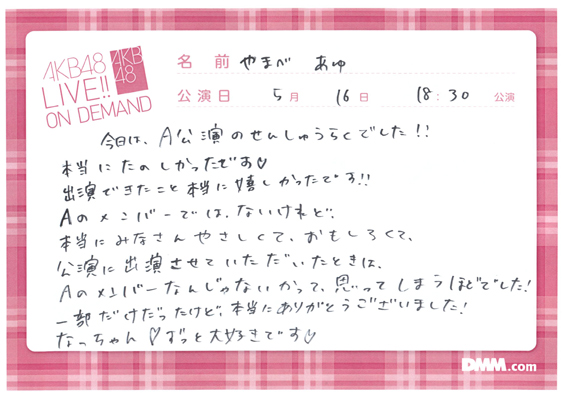 AKB48
LIVE!!
ON DEMAND
AKB
48
名前 やまべ あゆ
公演日 5月 16日 18:30 公演
今日は、A公演のせんしゅうらくでした!!
本当にたのしかったです♡
出演できたこと本当に嬉しかったです!!
Aのメンバーでは、ないけれど、
本当にみなさんやさしくて、おもしろくて、
公演に出演させていただいたときは、
Aのメンバーなんじゃないかって、思ってしまうほどでした!
一部だけだったけど、本当にありがとうございました!
なっちゃん♡ずっと大好きです♡
DMM.com